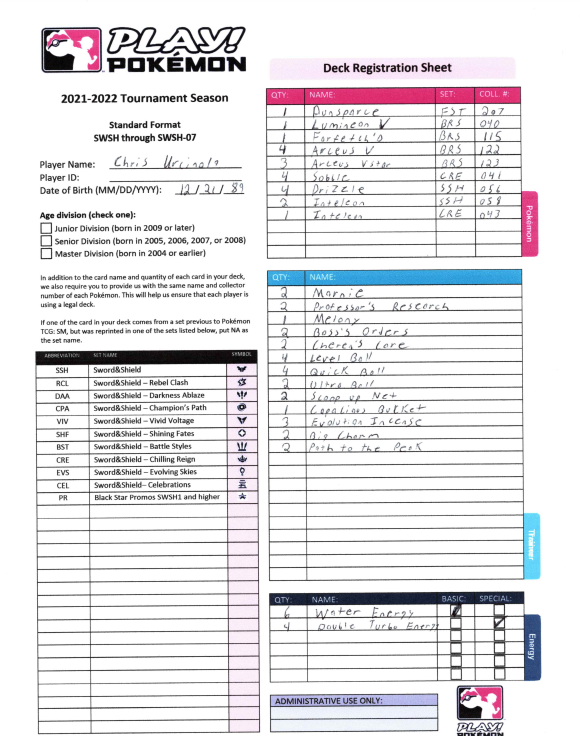 PLAY!
POKÉMON
2021-2022 Tournament Season
Standard Format
SWSH through SWSH-07
Player Name: Chris Urcinoli
Player ID:
Date of Birth (MM/DD/YYYY): 12/21/89
Age division (check one):
Junior Division (born in 2009 or later)
Senior Division (born in 2005, 2006, 2007, or 2008)
Master Division (born in 2004 or earlier)
In addition to the card name and quantity of each card in your deck,
we also require you to provide us with the same name and collector
number of each Pokémon. This will help us ensure that each player is
using a legal deck.
If one of the card in your deck comes from a set previous to Pokémon
TCG: SM, but was reprinted in one of the sets listed below, put NA as
the set name.
ABBREVIATION SET NAME SYMBOL
SSH Sword&Shield
RCL Sword&Shield – Rebel Clash
DAA Sword&Shield – Darkness Ablaze
CPA Sword&Shield – Champion's Path
VIV Sword&Shield – Vivid Voltage
SHF Sword&Shield – Shining Fates
BST Sword&Shield – Battle Styles
CRE Sword&Shield – Chilling Reign
EVS Sword&Shield – Evolving Skies
CEL Sword&Shield– Celebrations
PR Black Star Promos SWSH1 and higher
Deck Registration Sheet
QTY: NAME: SET: COLL. #:
1 Dunsparce FST 207
1 Lumineon V BRS 040
1 Farfetch'd BRS 115
4 Arceus V BRS 122
3 Arceus Vstar BRS 123
4 Sobble CRE 041
4 Drizzle SSH 056
2 Inteleon SSH 058
1 Inteleon CRE 043
Pokémon
QTY: NAME:
2 Marnie
2 Professor's Research
1 Melony
2 Boss's Orders
2 Cheren's Care
4 Level Ball
4 Quick Ball
2 Ultra Ball
2 Scoop up Net
1 Capacious Bucket
3 Evolution Incense
2 Big Charm
2 Path to the Peak
Trainer
QTY: NAME: BASIC: SPECIAL:
6 Water Energy
4 Double Turbo Energy
Energy
ADMINISTRATIVE USE ONLY:
PLAY!
POKÉMON